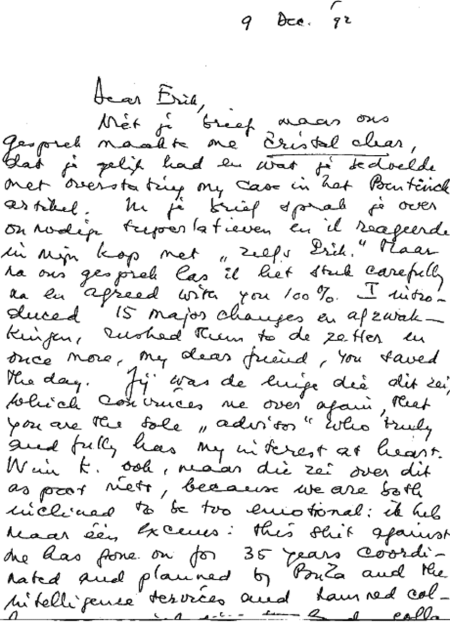 9 Dec. '92
Dear Erik,
Niet je brief maar ons
gesprek maakte me cristal clear,
dat je gelijk had en wat je bedoelde
met overstating my case in het
artikel. In je brief sprak je over
onnodige superlatieven en ik reageerde
in mijn kop met „zelfs Erik." Maar
na ons gesprek las ik het stuk carefully
na en agreed with you 100%. I intro-
duced 15 major changes en afzwak-
kingen, rushed them to de zetter en
once more, my dear friend, you saved
the day. Jij was de enige die dit zei,
which convinces me over again, that
you are the sole „advisor" who truly
and fully has my interest at heart.
Wim K. ook, maar die zei over dit
as poor niets, because we are both
inclined to be too emotional: ik heb
maar één excuus: this shit against
me has gone on for 35 years coordi-
nated and planned by BuZa and the
intelligence services and